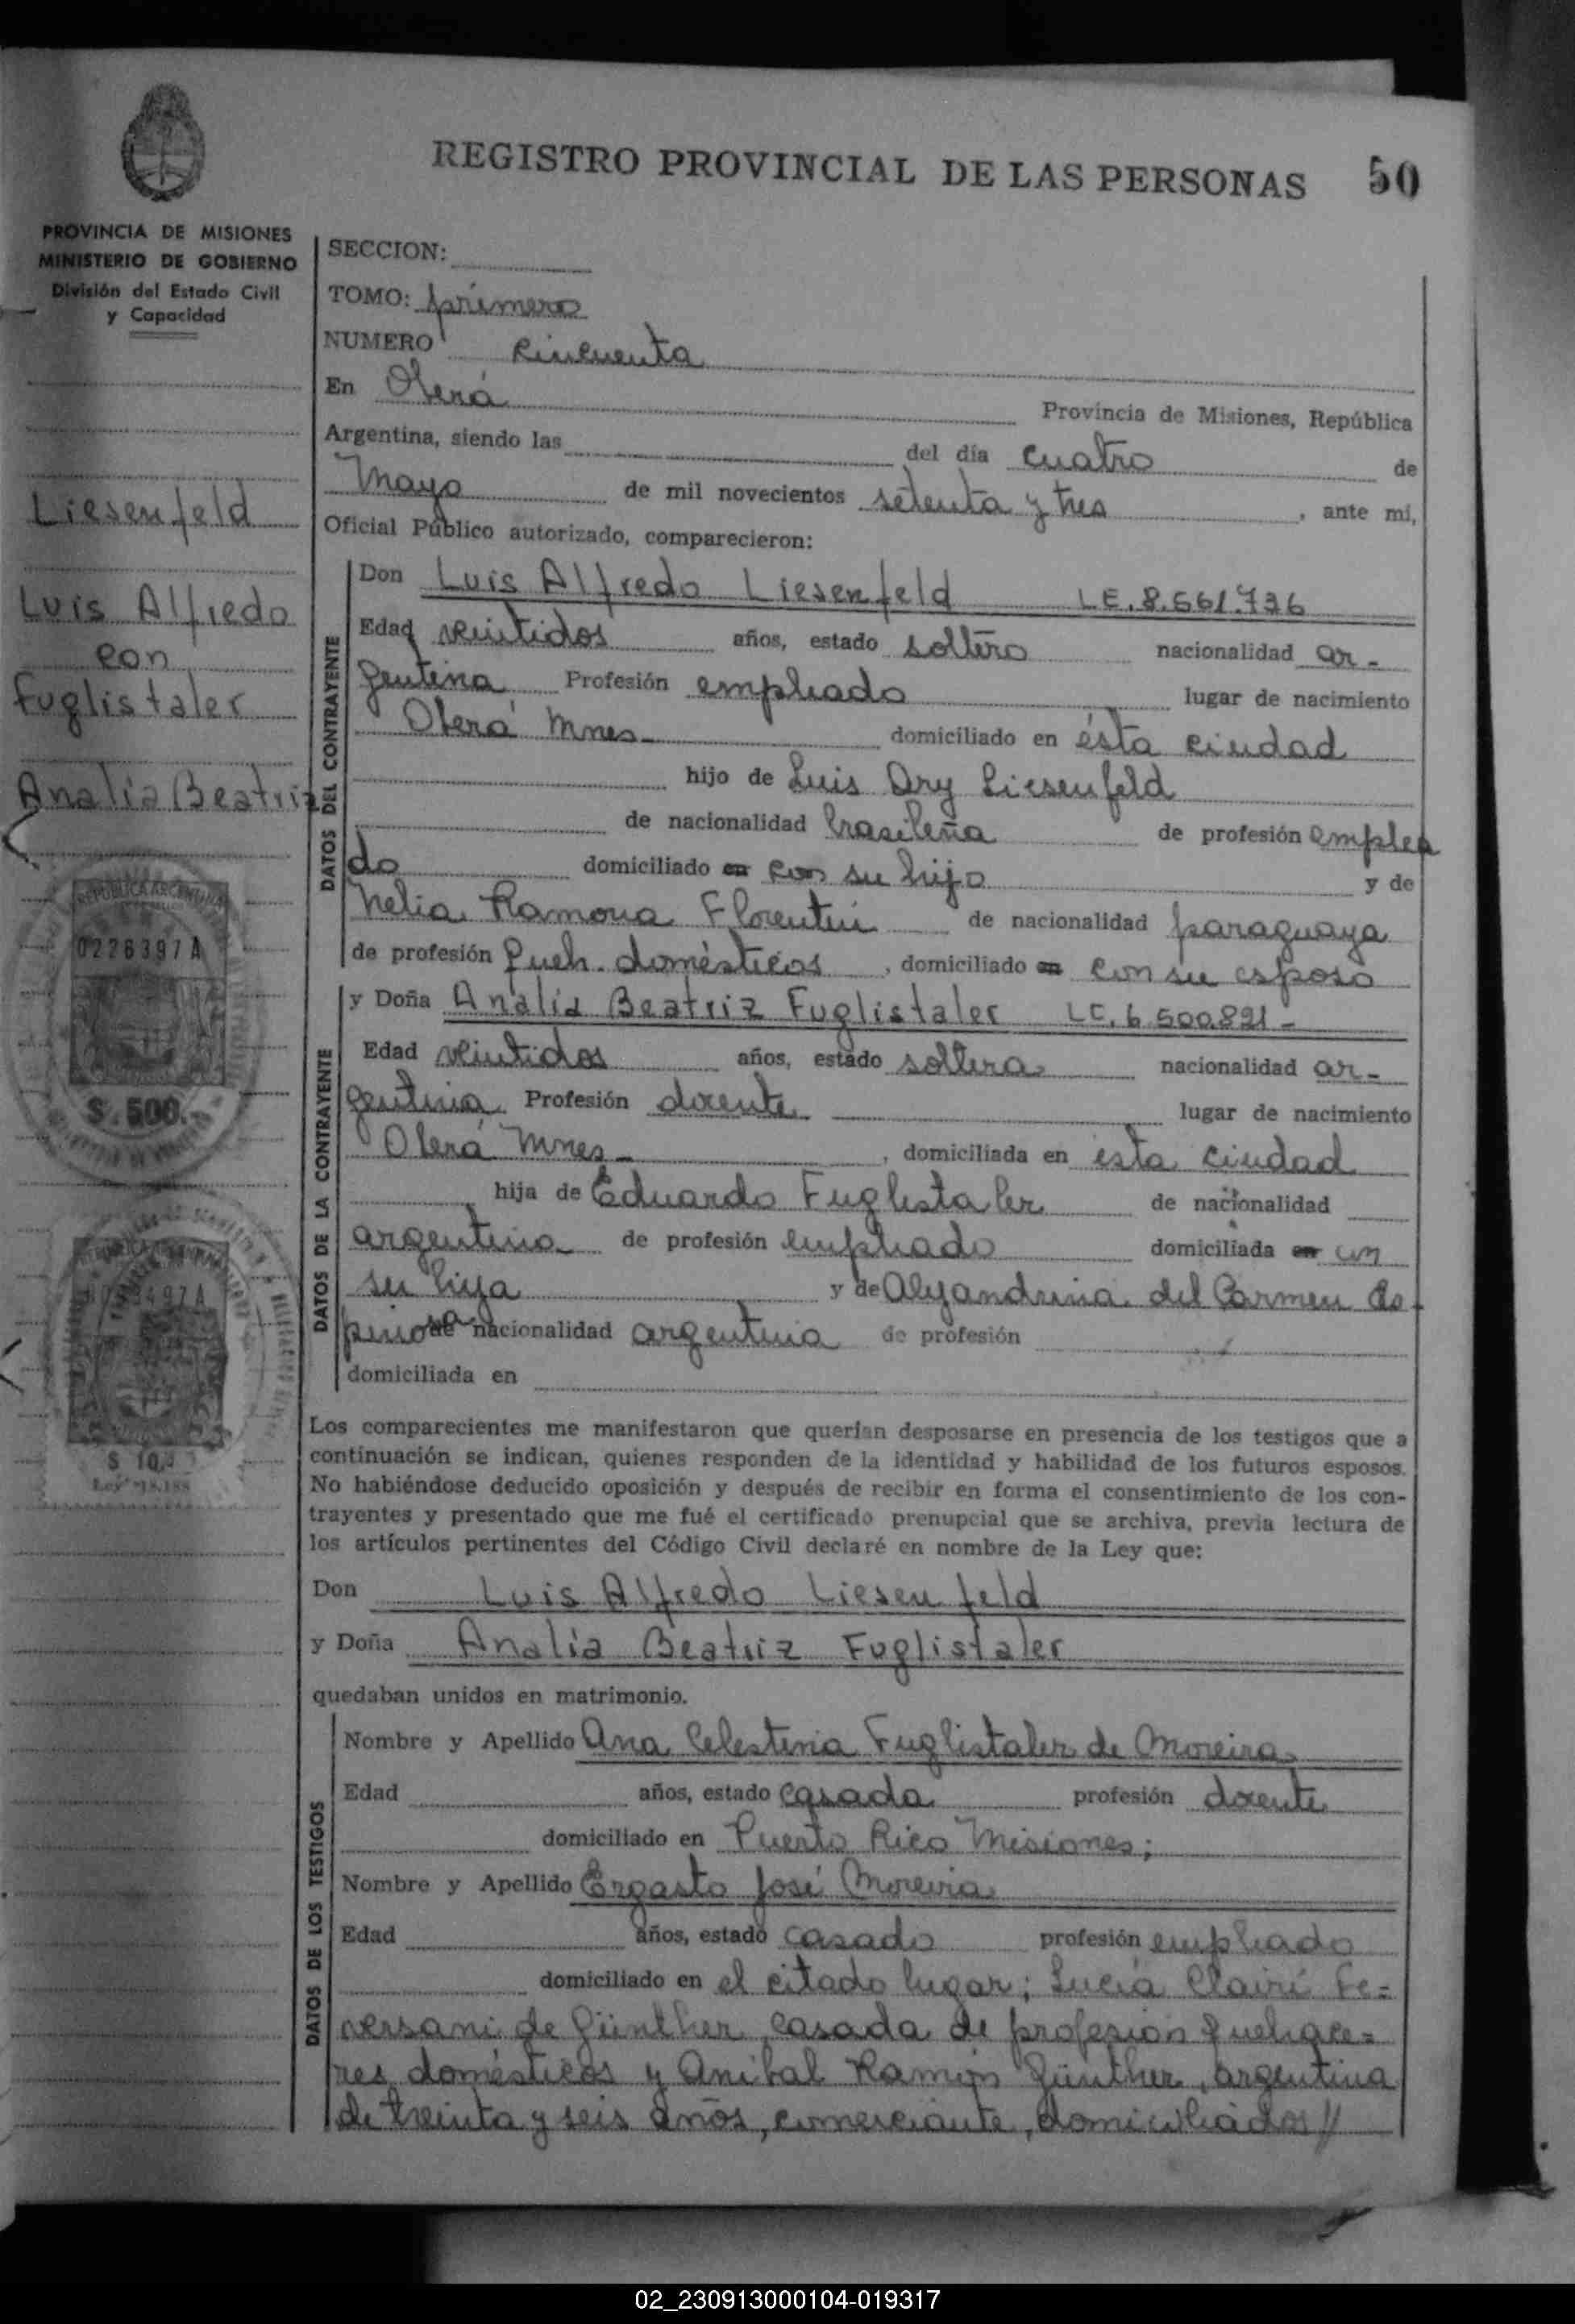 REGISTRO PROVINCIAL DE LAS PERSONAS 50
PROVINCIA DE MISIONES
MINISTERIO DE GOBIERNO
División del Estado Civil
y Capacidad
Liesenfeld
Luis Alfredo
con
Fuglistaler
Analía Beatriz
REPUBLICA ARGENTINA
0226397 A
$.500.
$ 10
Ley 18.188
SECCION:
TOMO: primero
NUMERO cincuenta
En Oberá Provincia de Misiones, República
Argentina, siendo las del día cuatro de
Mayo de mil novecientos setenta y tres, ante mí,
Oficial Público autorizado, comparecieron:
DATOS DEL CONTRAYENTE
Don Luis Alfredo Liesenfeld LE. 8.561.736
Edad veintidos años, estado soltero nacionalidad ar-
gentina Profesión empleado lugar de nacimiento
Oberá Mnes- domiciliado en ésta ciudad
hijo de Luis Ory Liesenfeld
de nacionalidad brasileña de profesión emplea
do domiciliado en con su hijo y de
Nelia Ramona Florentin de nacionalidad paraguaya
de profesión Queh. domésticos, domiciliado en con su esposo
DATOS DE LA CONTRAYENTE
y Doña Analía Beatriz Fuglistaler LC. 6.500.821-
Edad veintidos años, estado soltera nacionalidad ar-
gentina Profesión docente lugar de nacimiento
Oberá Mnes-, domiciliada en ésta ciudad
hija de Eduardo Fuglistaler de nacionalidad
argentina de profesión empleado domiciliada en con
su hija y de Alejandrina del Carmen Es-
pinosa de nacionalidad argentina de profesión
domiciliada en
Los comparecientes me manifestaron que querían desposarse en presencia de los testigos que a
continuación se indican, quienes responden de la identidad y habilidad de los futuros esposos.
No habiéndose deducido oposición y después de recibir en forma el consentimiento de los con-
trayentes y presentado que me fué el certificado prenupcial que se archiva, previa lectura de
los artículos pertinentes del Código Civil declaré en nombre de la Ley que:
Don Luis Alfredo Liesenfeld
y Doña Analía Beatriz Fuglistaler
quedaban unidos en matrimonio.
DATOS DE LOS TESTIGOS
Nombre y Apellido Ana Celestina Fuglistaler de Moreira
Edad años, estado casada profesión docente
domiciliado en Puerto Rico Misiones;
Nombre y Apellido Ergasto José Moreira
Edad años, estado casado profesión empleado
domiciliado en el citado lugar; Lucía Clairi Fe=
versani de Günther, casada de profesión quehace=
res domésticos y Anibal Ramón Günther, argentina
de treinta y seis años, comerciante, domiciliados//
02_230913000104-019317